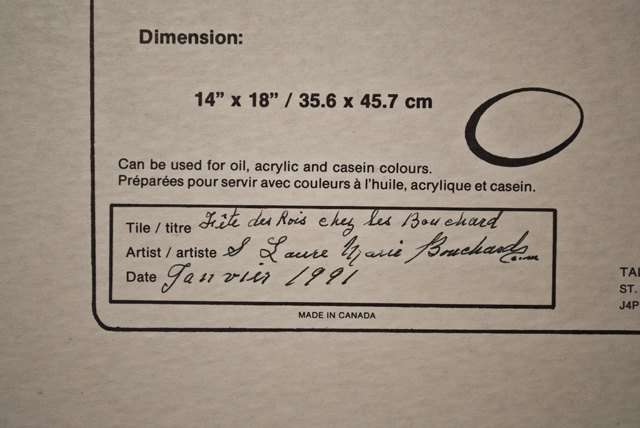 Dimension:
14” x 18” / 35.6 x 45.7 cm
Can be used for oil, acrylic and casein colours.
Préparées pour servir avec couleurs à l'huile, acrylique et casein.
Tile / titre Fête des Rois chez les Bouchard
Artist / artiste S Laure Marie Bouchard
Date Janvier 1991
MADE IN CANADA
TAI
ST.
J4P